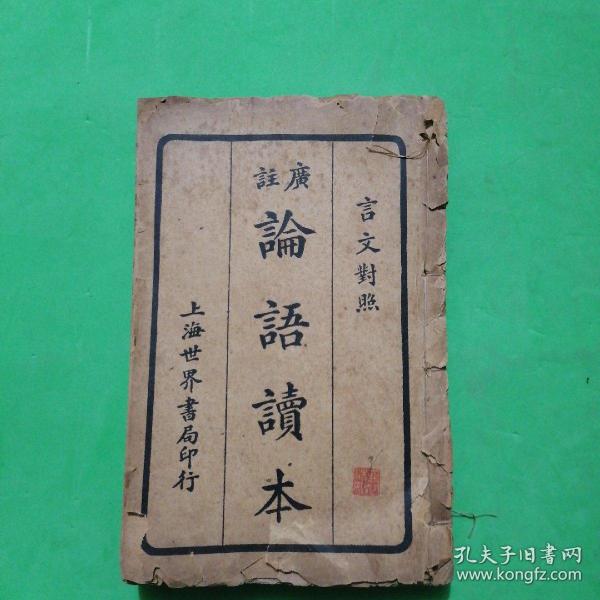 言文對照
廣註
論語讀本
上海世界書局印行
孔夫子旧书网
www.kongfz.com